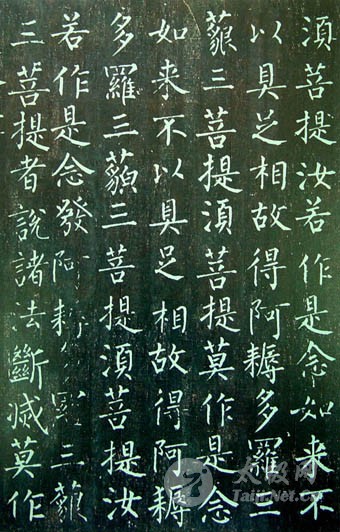 須菩提汝若作是念如来不
以具足相故得阿耨多羅三
藐三菩提須菩提莫作是念
如来不以具足相故得阿耨
多羅三藐三菩提須菩提汝
若作是念發阿耨多羅三藐
三菩提者說諸法斷滅莫作
太极网
Taiji.Net.Cn